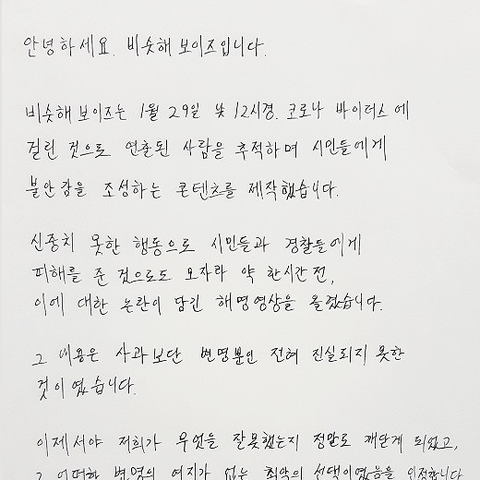 안녕하세요. 비슷해 보이즈입니다.
비슷해 보이즈는 1월 29일 낮 12시경. 코로나 바이러스에
걸린 것으로 연출된 사람을 추적하며 시민들에게
불안감을 조성하는 콘텐츠를 제작했습니다.
신중치 못한 행동으로 시민들과 경찰들에게
피해를 준 것으로도 모자라 약 한시간 전,
이에 대한 논란이 담긴 해명영상을 올렸습니다.
그 내용은 사과보단 변명뿐인 전혀 진실되지 못한
것이였습니다.
이제서야 저희가 무엇을 잘못했는지 정말로 깨닫게 되었고,
그 어떠한 변명의 여지가 없는 최악의 선택이였음을 인정합니다